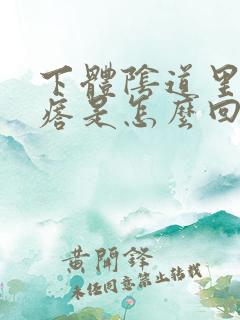 下體陰道里
痞是怎麼回
黄開鋒
未任同意禁止转载